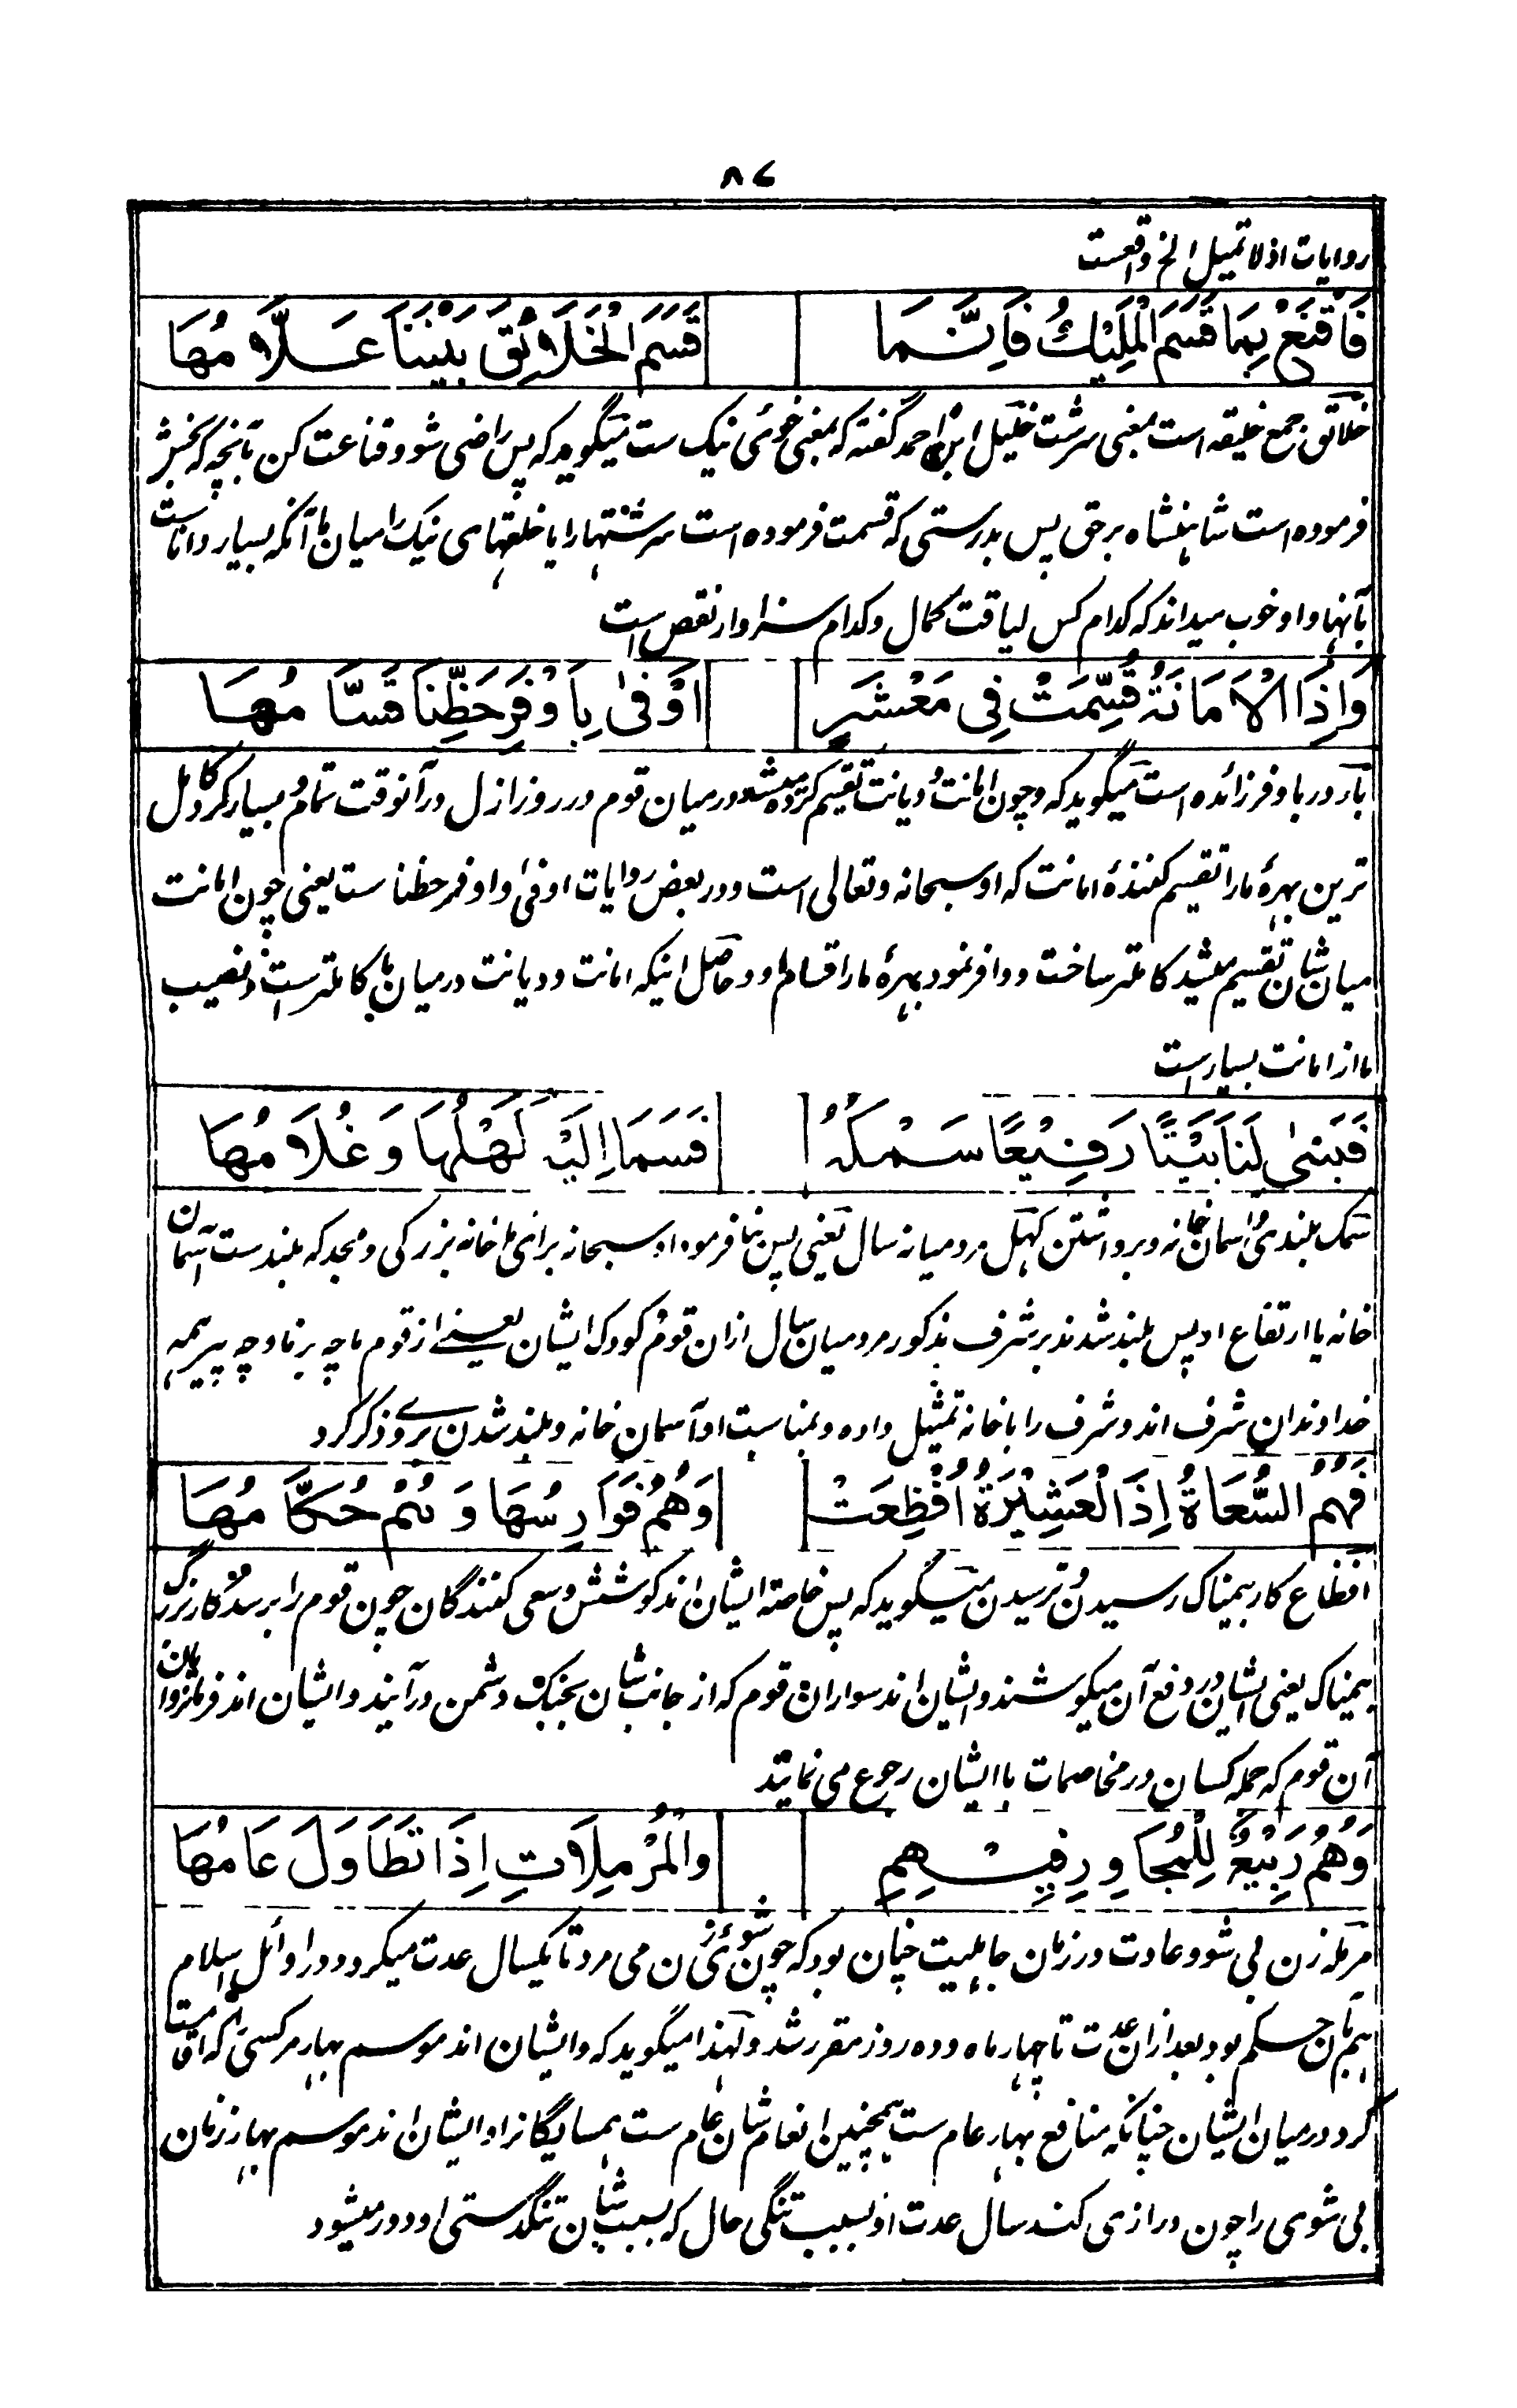 ۸۷
روایات اذ لا تمیل الخ واقعست
فَاقْنَعْ بِمَا قَسَمَ الْمَلِيْكُ فَاِنَّمَا قَسَمَ الْخَلَائِقَ بَيْنَنَا عَلَّامُهَا
خلائق جمع خلیقه است بمعنی سرشت خلیل ابن احمد گفته که بمعنی خوئی نیک ست میگوید که پس راضی شو و قناعت کن بآنچه که بخش
فرموده است شاهنشاه برحق پس بدرستی که قسمت فرموده است سرشتها را یا خلقهای نیک را میان ما آنکه بسیار داناست
بآنها و او خوب میداند که کدام کس لیاقت کمال و کدام سزاوار نقص است
وَاِذَا الْاَمَانَةُ قُسِّمَتْ فِى مَعْشَرٍ اَوْفىٰ بِاَوْفَرِ حَظِّنَا قَسَّامُهَا
بآ در باوفر زائده است میگوید که و چون امانت و دیانت تقسیم کرده میشد در میان قوم در روز ازل در آنوقت تمام و بسیار کرد کامل
ترین بهرۀ ما را تقسیم کنندۀ امانت که او سبحانه و تعالی است و در بعض روایات اوفیٰ و اوفر حظنا ست یعنی چون امانت
میان شان تقسیم میشد کاملتر ساخت و وافر نمود بهرۀ ما را قسام او و حاصل اینکه امانت و دیانت در میان ما کاملترست و نصیب
ما از امانت بسیارست
فَبَنىٰ لَنَا بَيْتًا رَفِيْعًا سَمْكُهٗ فَسَمَا اِلَيْهِ كَهْلُهَا وَغُلَامُهَا
سمک بلندی و آسمان خانه و برداشتن کهل مرد میانه سال یعنی پس بنا فرمود او سبحانه برای ما خانه بزرگی و مجد که بلندست آسمان
خانه یا ارتفاع او پس بلند شدند بر شرف مذکور مرد میان سال ازان قوم و کودک ایشان یعنے از قوم ما چه برنا و چه پیر همه
خداوندان شرف اند و شرف را با خانه تمثیل داده و بمناسبت او آسمان خانه و بلند شدن بروے ذکر کرد
فَهُمُ السُّعَاةُ اِذَا الْعَشِيْرَةُ اُفْظِعَتْ وَهُمُ فَوَارِسُهَا وَهُمْ حُكَّامُهَا
افظاع کار بیمناک رسیدن و ترسیدن میگوید که پس خاصة ایشان اند کوشش و سعی کنندگان چون قوم را برسد کار بزرگ
بیمناک یعنی ایشان در دفع آن میکوشند و ایشان اند سواران قوم که از جانب شان بجنگ دشمن درآیند و ایشان اند فرمانروایان
آن قوم که جمله کسان در مخاصمات با ایشان رجوع می نمایند
وَهُمُ رَبِيْعٌ لِلْمُجَاوِرِ فِيْهِمِ وَالْمُرْمِلَاتِ اِذَا تَطَاوَلَ عَامُهَا
مرمله زن بی شو و عادت در زمان جاهلیت چنان بود که چون شوئ زن می مرد تا یکسال عدت میکرد و در اوائل اسلام
هم آن حکم بود بعد ازان عدت تا چهار ماه و ده روز مقرر شد و لهذا میگوید که و ایشان اند موسم بهار مر کسی را که اقامت
کرد در میان ایشان چنانکه منافع بهار عام ست همچنین انعام شان عام ست همسایگانرا و ایشان اند موسم بهار زنان
بی شوی را چون درازی کند سال عدت او بسبب تنگی حال که بسبب شان تنگدستی او دور میشود